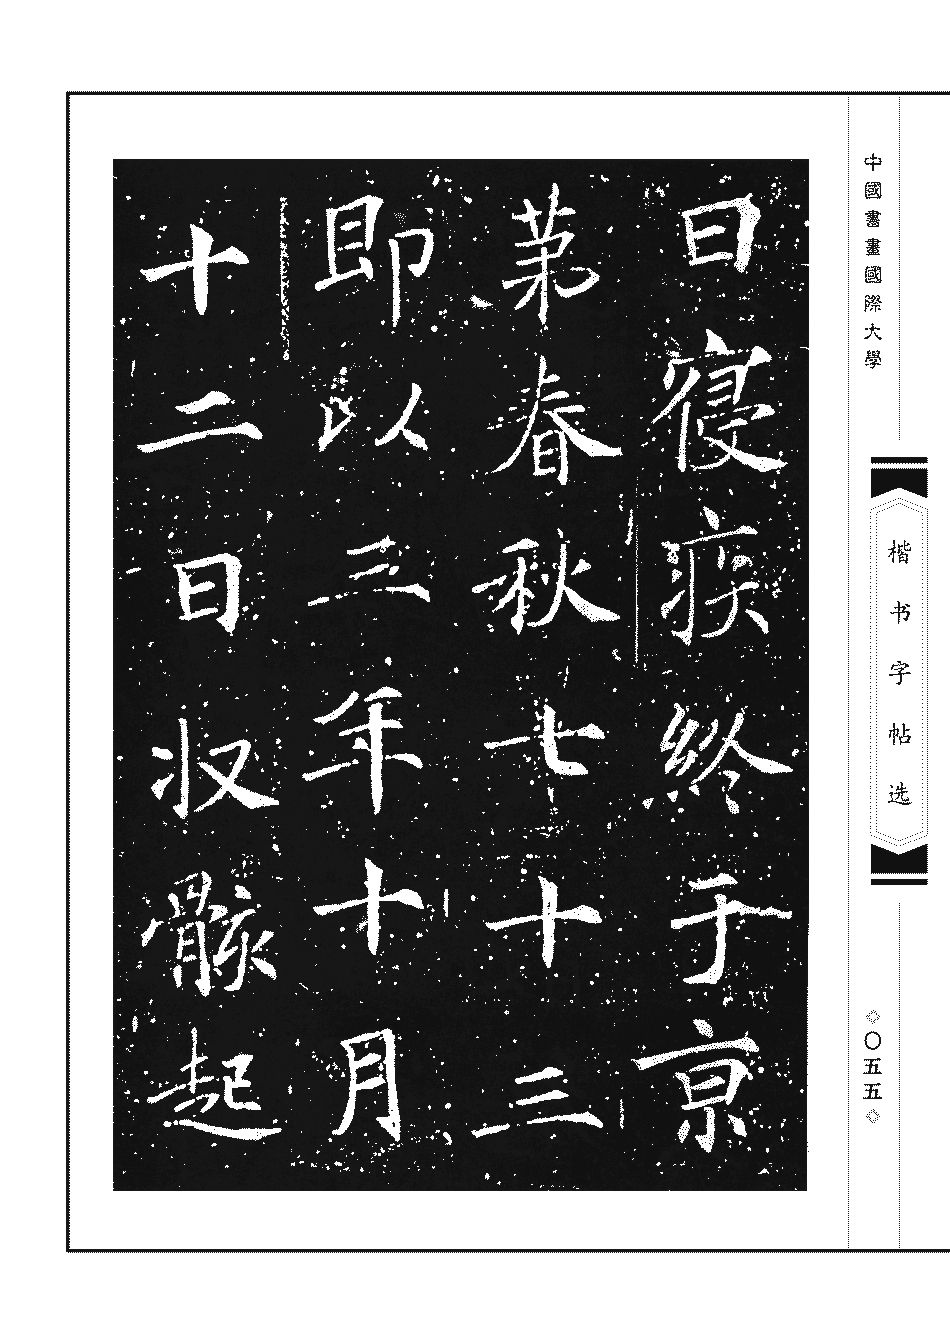 日寑疾終于亰
苐春秋七十三
即以三年十月
十二日収骸起
中國書畫國際大學
楷书字帖选
◇〇五五◇